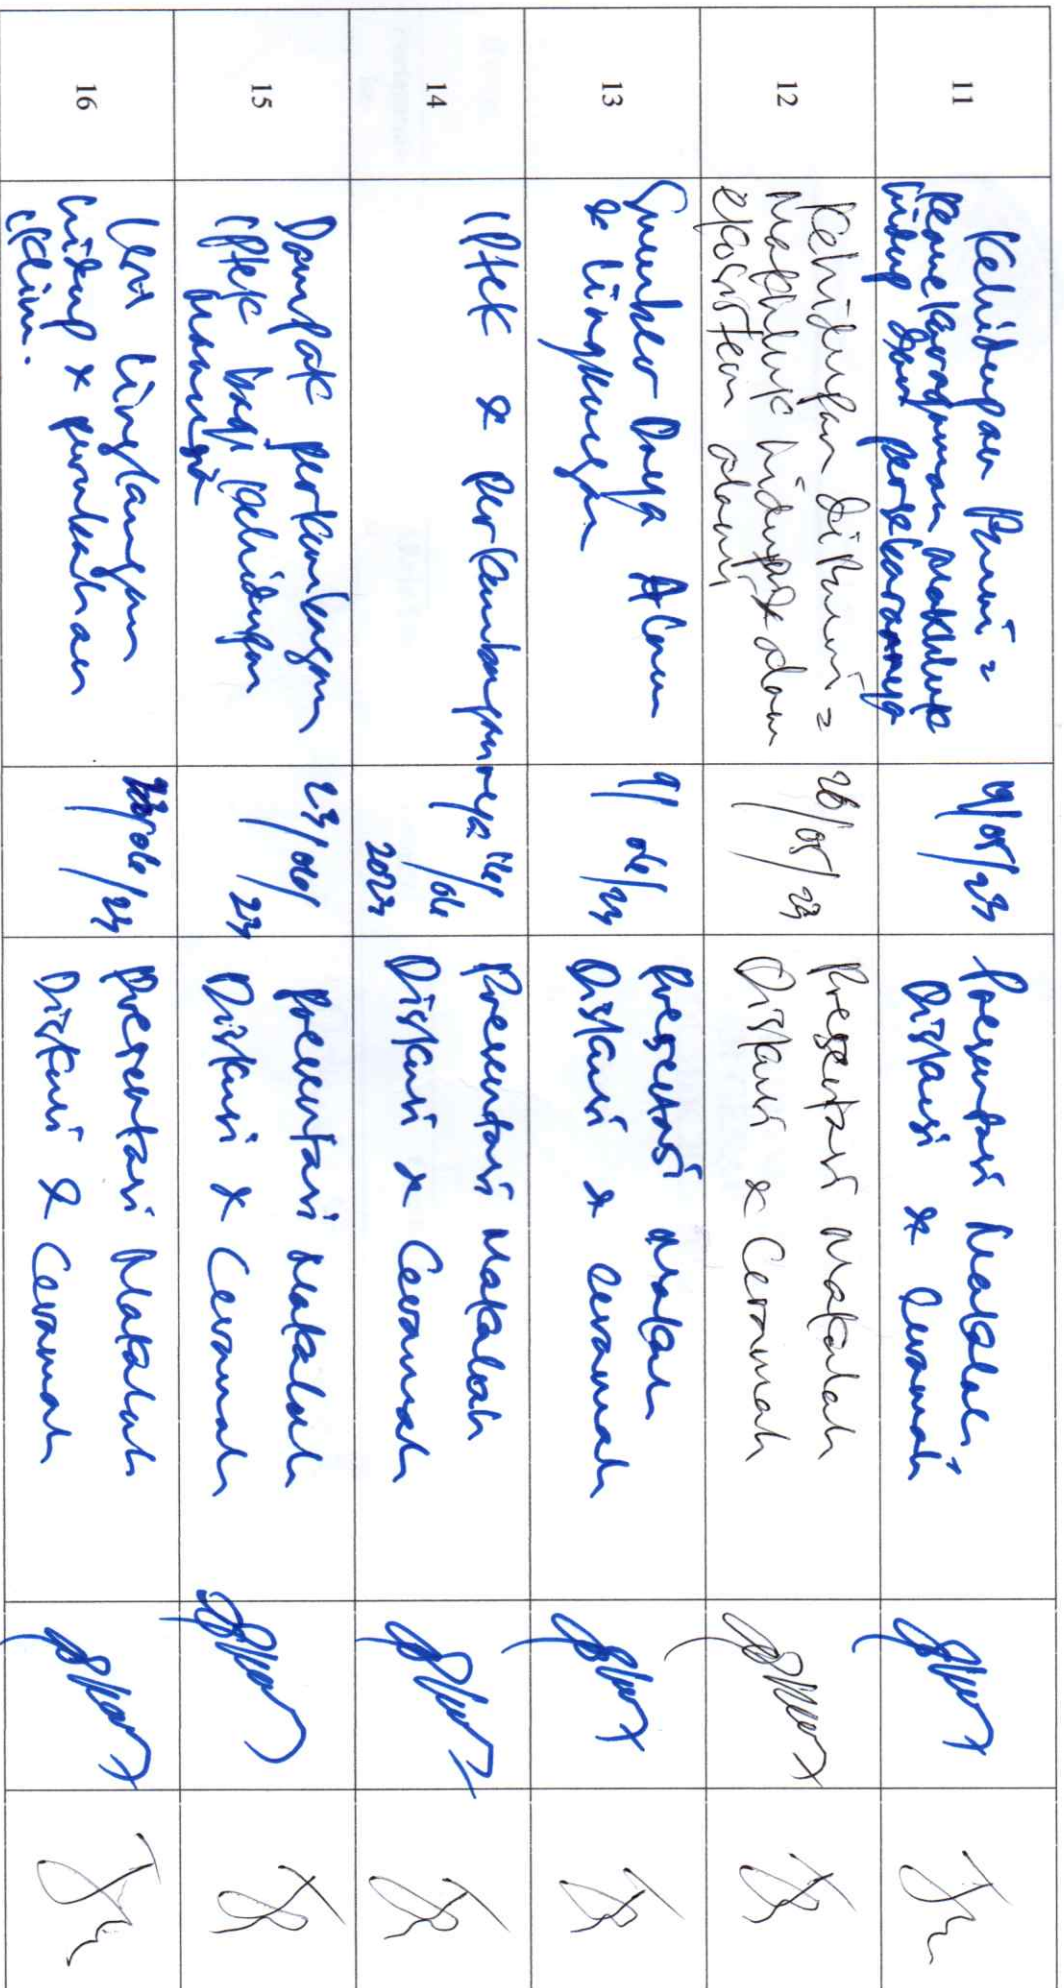 11
Kehidupan Bumi =
Keanekaragaman Makhluk
hidup dan persebarannya
19/05/23
Presentasi Makalah
Diskusi & Ceramah
12
Kehidupan di Bumi =
Makhluk hidup dlam
ekosistem alami
26/05/23
Presentasi Makalah
Diskusi & Ceramah
13
Sumber Daya Alam
& Lingkungan
9/06/23
Presentasi
Diskusi & Ceramah
14
IPtek & Perkembangannya
/06
2023
Presentasi Makalah
Diskusi & Ceramah
15
Dampak perkembangan
IPtek bagi kehidupan
Manusia
23/06/
23
Presentasi Makalah
Diskusi & Ceramah
16
Lingkungan
hidup & perubahan
iklim.
/06/23
Presentasi Makalah
Diskusi & Ceramah